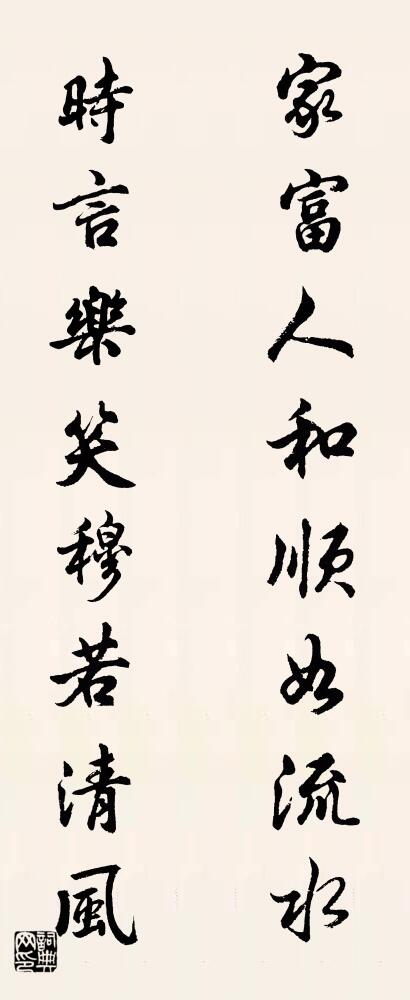 家富人和順如流水
時言樂笑穆若清風
詞典网印